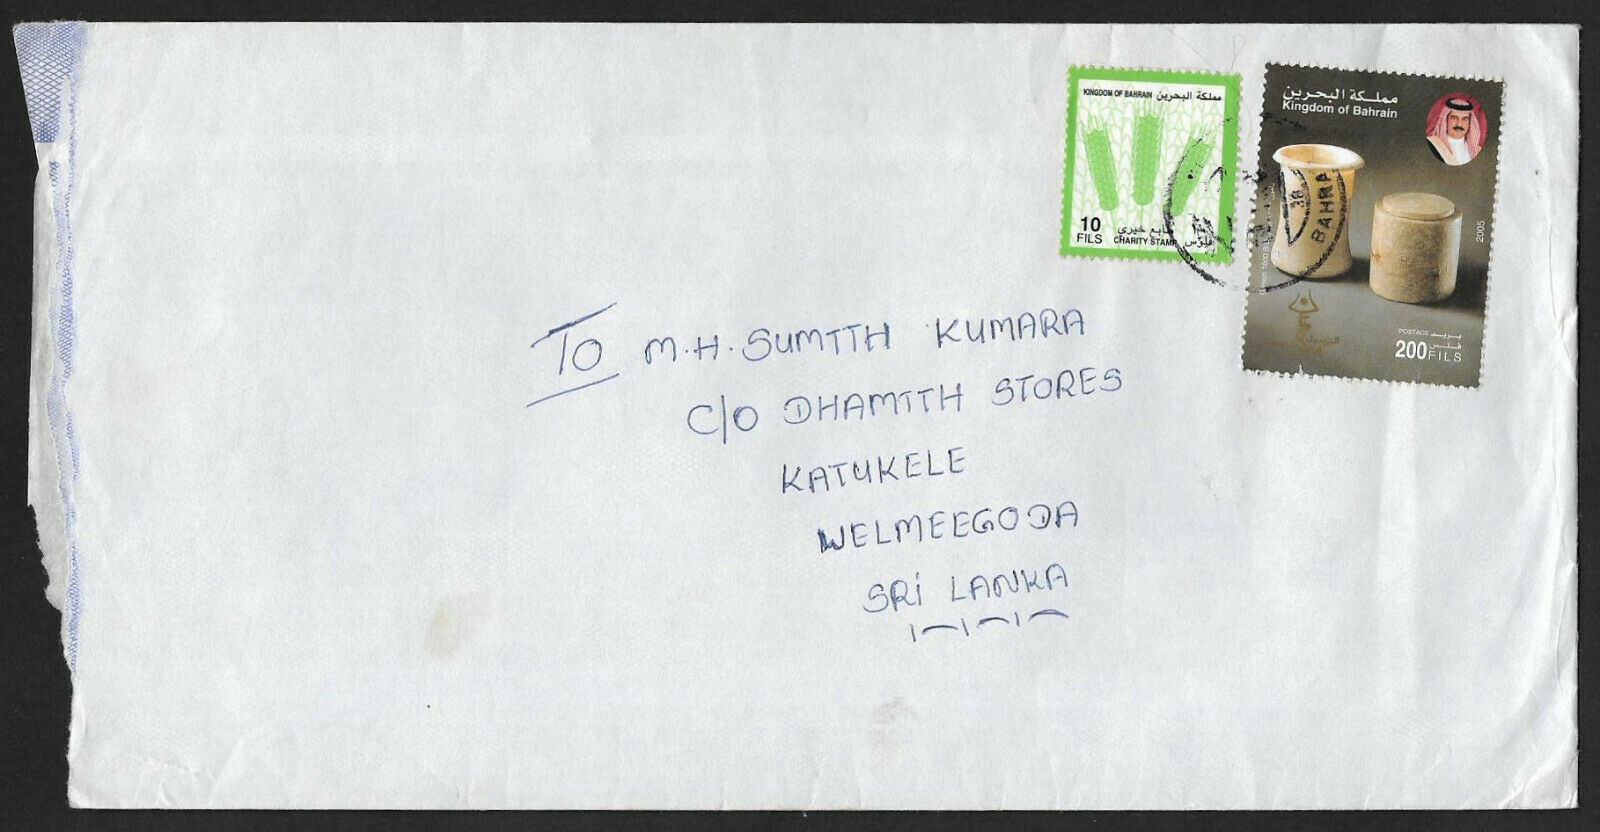 KINGDOM OF BAHRAIN مملكة البحرين
10
FILS
طابع خيري
CHARITY STAMP
فلوس
مملكة البحرين
Kingdom of Bahrain
2005
POSTAGE بريد
200 فلس
FILS
38
BAHRA
TO M.H. SUMITH KUMARA
C/O DHAMITH STORES
KATUKELE
WELMEEGODA
SRi LANKA